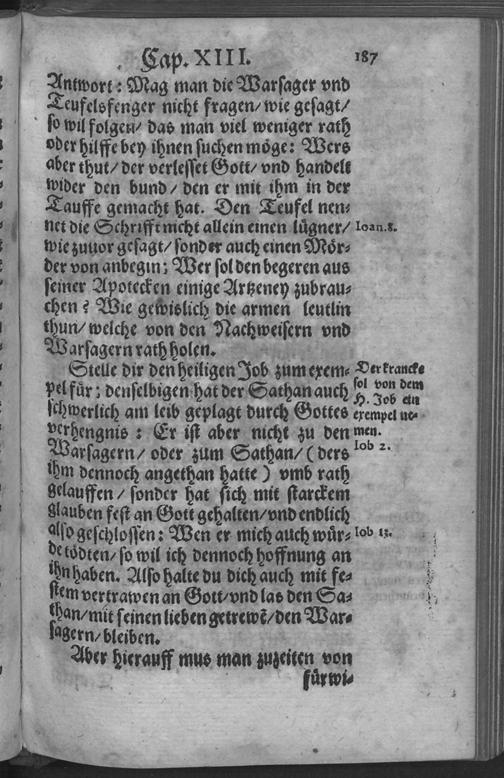 Cap. XIII. 187
Antwort: Mag man die Warsager vnd
Teufelsfenger nicht fragen/ wie gesagt/
so wil folgen/ das man viel weniger rath
oder hilffe bey ihnen suchen möge: Wers
aber thut/ der verlesset Gott/ vnd handelt
wider den bund/ den er mit ihm in der
Tauffe gemacht hat. Den Teufel nen-
net die Schrifft nicht allein einen lügner/ Ioan. 8.
wie zuuor gesagt/ sonder auch einen Mör-
der von anbegin: Wer sol den begeren aus
seiner Apotecken einige Artzeney zubrau-
chen? Wie gewislich die armen leutlin
thun/ welche von den Nachweisern vnd
Warsagern rath holen.
Stelle dir den heiligen Job zum exem-
pel für: denselbigen hat der Sathan auch
schwerlich am leib geplagt durch Gottes
verhengnis: Er ist aber nicht zu den
Warsagern/ oder zum Sathan/ (ders
ihm dennoch angethan hatte) vmb rath
gelauffen/ sonder hat sich mit starckem
glauben fest an Gott gehalten/ vnd endlich
also geschlossen: Wen er mich auch wür-
de tödten/ so wil ich dennoch hoffnung an
ihn haben. Also halte du dich auch mit fe-
stem vertrawen an Gott/ vnd las den Sa-
than/ mit seinen lieben getrewē/ den War-
sagern/ bleiben.
Aber hierauff mus man zuzeiten von
fürwi-
Der krancke
sol von dem
H. Job ein
exempel ne-
men.
Iob 2.
Iob 13.